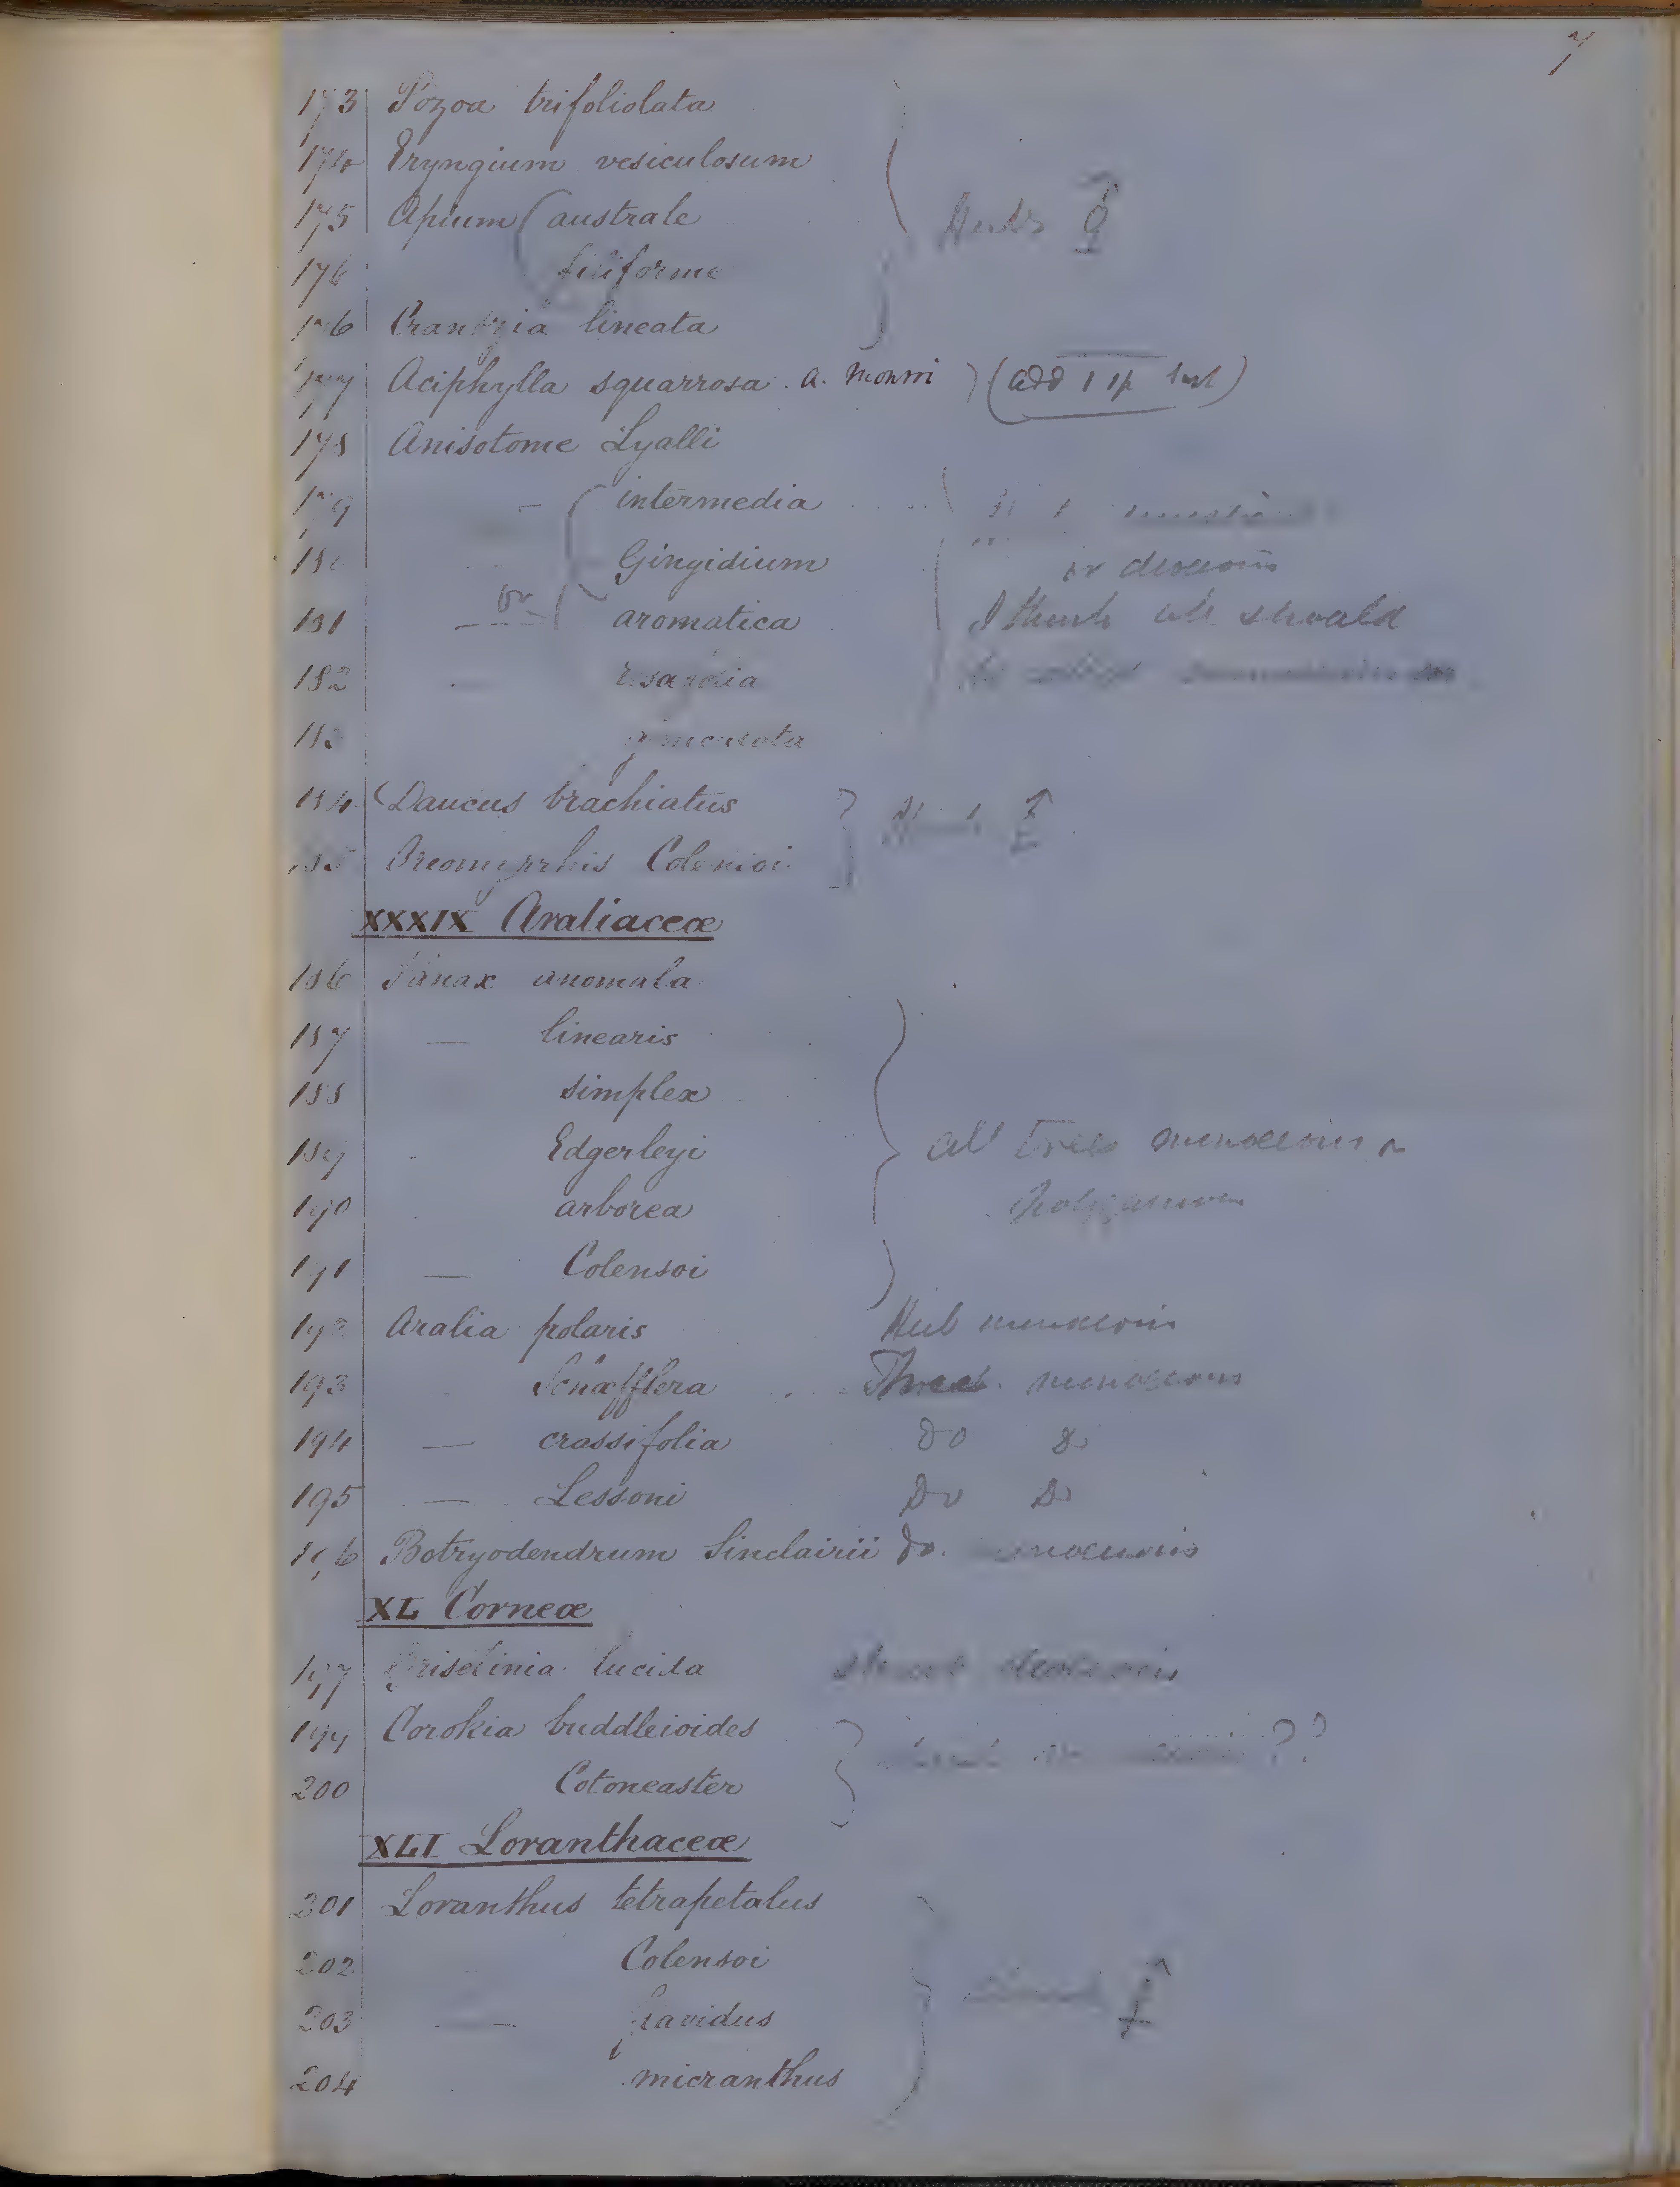 7
173 Pozoa trifoliolata
174 Eryngium vesiculosum
175 Apium australe
Herbs ☿
176 filiforme
176 Crantzia lineata
177 Aciphylla squarrosa. A. Monroi (add 1 sp
178 Anisotome Lyalli
179 — intermedia
180 Gingidium
or dioecious
181 — or aromatica
I think all should
182
be
183
184 Daucus brachiatus
185 Oreomyrrhis Colensoi
XXXIX Araliaceæ
186 Panax anomala
187 — linearis
188 simplex
189 Edgerleyi
All Trees monoecious or
190 arborea
Polygamous
191 — Colensoi
192 Aralia polaris Herb monoecious
193 Schæfflera monoecious
194 — crassifolia do do
195 — Lessoni Do Do
196 Botryodendrum Sinclairii do. monoecious
XL Corneæ
197 Griselinia lucida shrub dioecious
199 Corokia buddleioides
??
200 Cotoneaster
XLI Loranthaceæ
201 Loranthus tetrapetalus
202 Colensoi
☿
203 — flavidus
204 micranthus